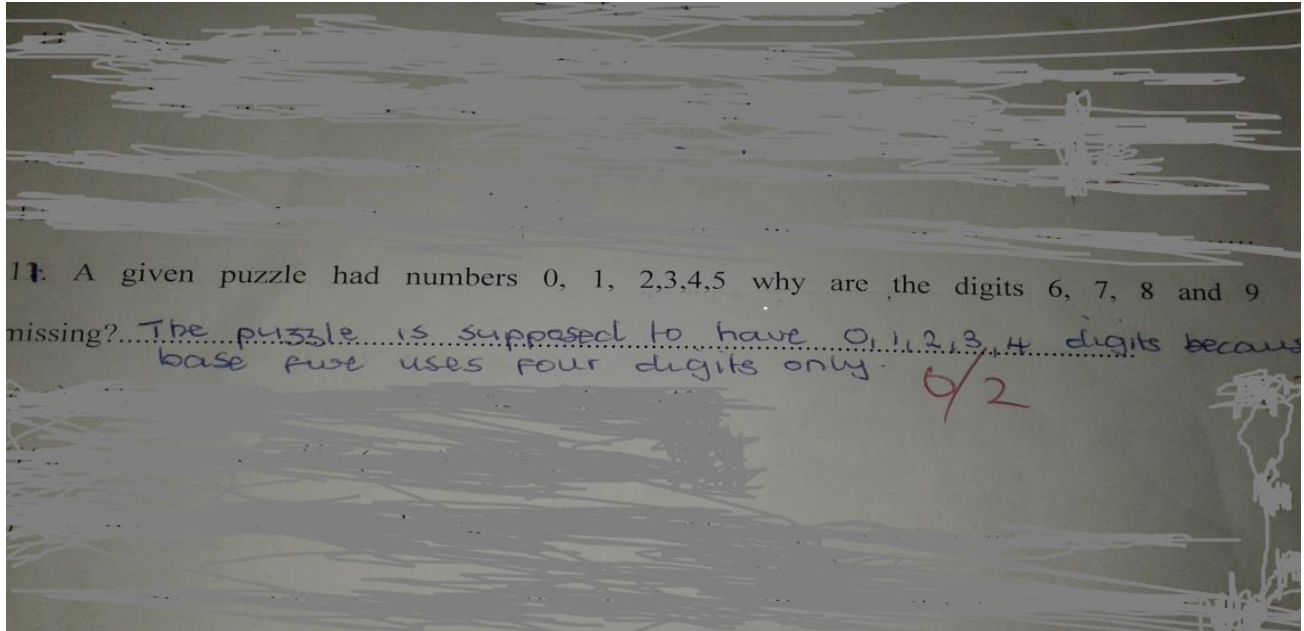 11. A given puzzle had numbers 0, 1, 2,3,4,5 why are the digits 6, 7, 8 and 9
missing?..The puzzle is supposed to have 0,1,2,3,4 digits becaus
base five uses four digits only.
0/2